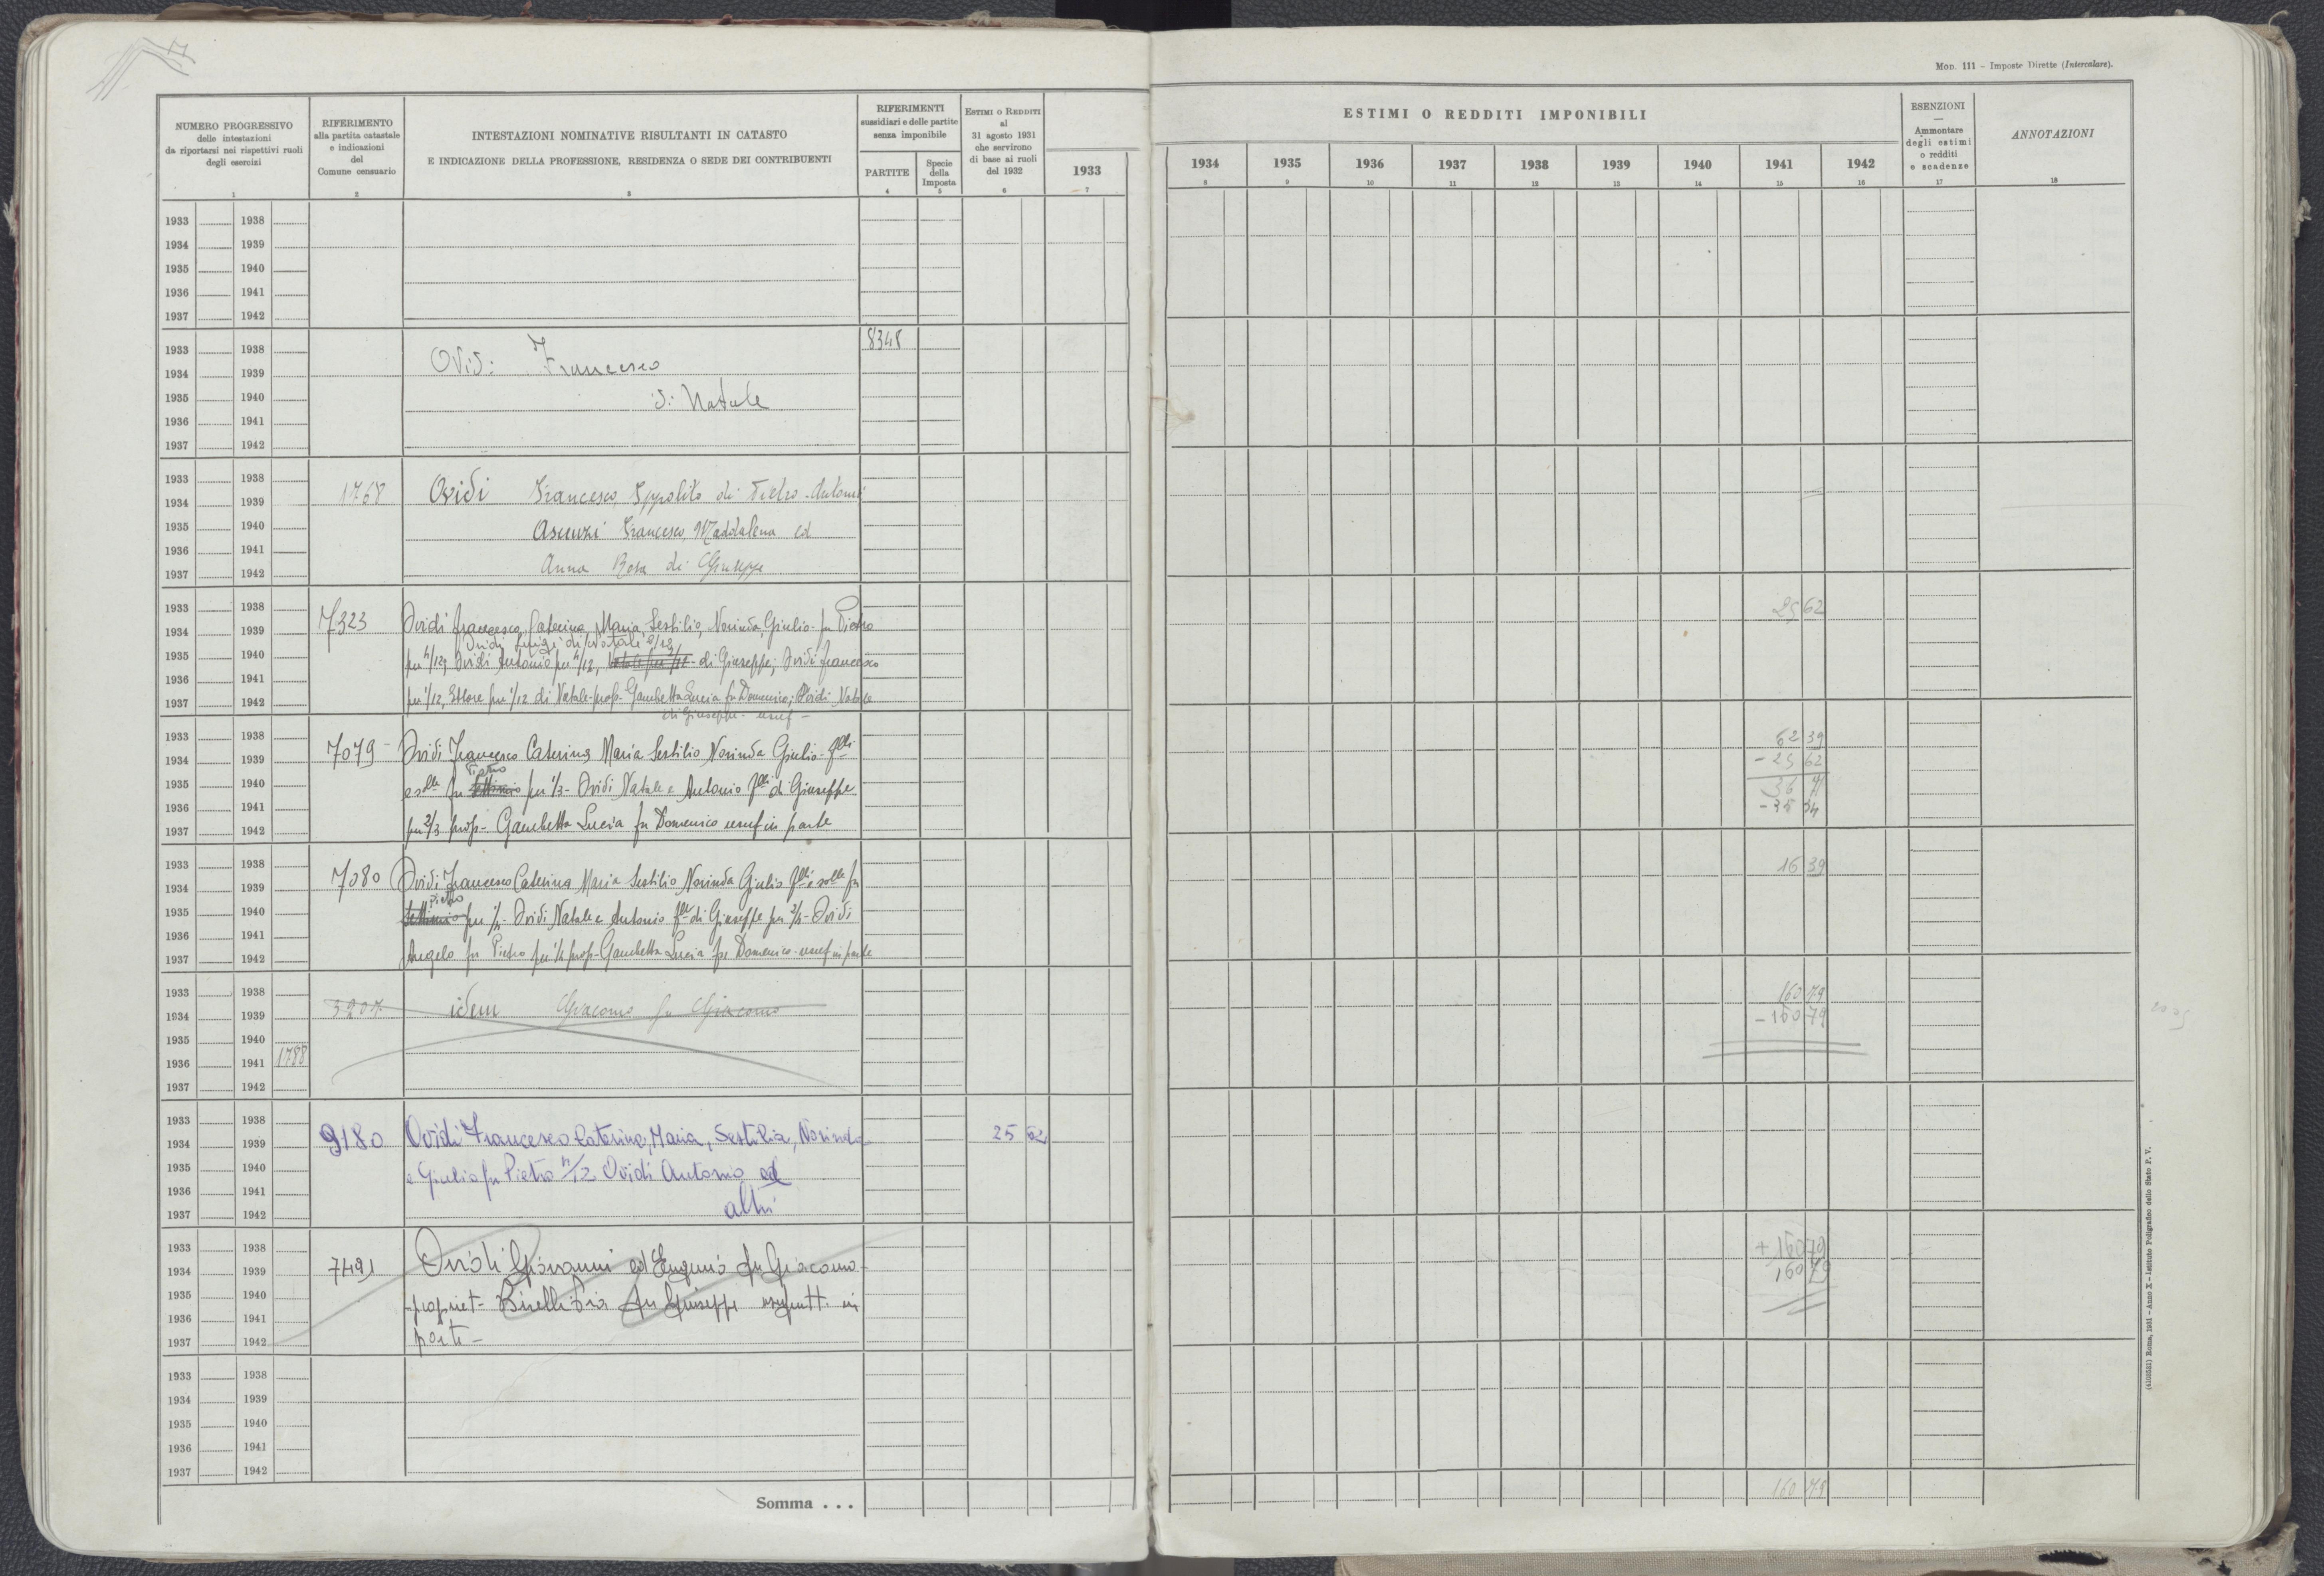 Mod. 111 - Imposte Dirette (Intercalare).
NUMERO PROGRESSIVO
delle intestazioni
da riportarsi nei rispettivi ruoli
degli esercizi
1
RIFERIMENTO
alla partita catastale
e indicazioni
del
Comune censuario
2
INTESTAZIONI NOMINATIVE RISULTANTI IN CATASTO
E INDICAZIONE DELLA PROFESSIONE, RESIDENZA O SEDE DEI CONTRIBUENTI
3
RIFERIMENTI
sussidiari e delle partite
senza imponibile
PARTITE
4
Specie
della
Imposta
5
ESTIMI O REDDITI
al
31 agosto 1931
che servirono
di base ai ruoli
del 1932
6
1933
7
ESTIMI O REDDITI IMPONIBILI
1934 1935 1936 1937 1938 1939 1940 1941 1942
8 9 10 11 12 13 14 15 16
ESENZIONI
Ammontare
degli estimi
o redditi
e scadenze
17
ANNOTAZIONI
18
1933 1938
1934 1939
1935 1940
1936 1941
1937 1942
1933 1938 8348
1934 1939 Ovidi Francesco
1935 1940 di Natale
1936 1941
1937 1942
1933 1938
1934 1939 1768 Ovidi Francesco, Ippolito di Pietro-Antonio
1935 1940 Ascenzi Francesco, Maddalena ed
1936 1941 Anna Rosa di Giuseppe
1937 1942
1933 1938 25 62
1934 1939 7323 Ovidi Francesco, Caterina, Maria, Sestilio, Norinda, Giulio fu Pietro
Ovidi Luigi di Natale 2/12
1935 1940 per 4/12, Ovidi Antonio per 4/12, Natale per 2/12 di Giuseppe; Ovidi Francesco
1936 1941
1937 1942 per 1/12, Ettore per 1/12 di Natale-prop. Gambetta Lucia fu Domenico; Ovidi Natale
di Giuseppe - usuf -
1933 1938 62 39
1934 1939 7079 Ovidi Francesco Caterina Maria Sestilio Norinda Giulio flli - 25 62
Pietro
1935 1940 e slle fu Settimio per 1/3 - Ovidi Natale e Antonio flli di Giuseppe 36 77
1936 1941
1937 1942 per 2/3 prop - Gambetta Lucia fu Domenico usuf in parte
1933 1938 16 39
1934 1939 7080 Ovidi Francesco Caterina Maria Sestilio Norinda Giulio flli e solle fu
Pietro
1935 1940 Settimio per 1/4 - Ovidi Natale e Antonio flli di Giuseppe per 2/4 - Ovidi
1936 1941
1937 1942 Angelo fu Pietro per 1/4 prop - Gambetta Lucia fu Domenico - usuf in parte
1933 1938 160 79
1934 1939 3207 idem Giacomo fu Giacomo - 160 79
1935 1940
1936 1941 1788
1937 1942
1933 1938
1934 1939 9180 Ovidi Francesco Caterina, Maria, Sestilia, Norinda 25 62
1935 1940 e Giulio fu Pietro 4/12 Ovidi Antonio ed
1936 1941
1937 1942 altri
1933 1938 + 160 79
1934 1939 7491 Ovidi Giovanni ed Eugenio fu Giacomo 160 79
1935 1940 propriet - Birelli Pia fu Giuseppe usufrutt. in
1936 1941
1937 1942 parte -
1933 1938
1934 1939
1935 1940
1936 1941
1937 1942
Somma . . . 160 79
(4103531) Roma, 1931 - Anno X - Istituto Poligrafico dello Stato P. V.